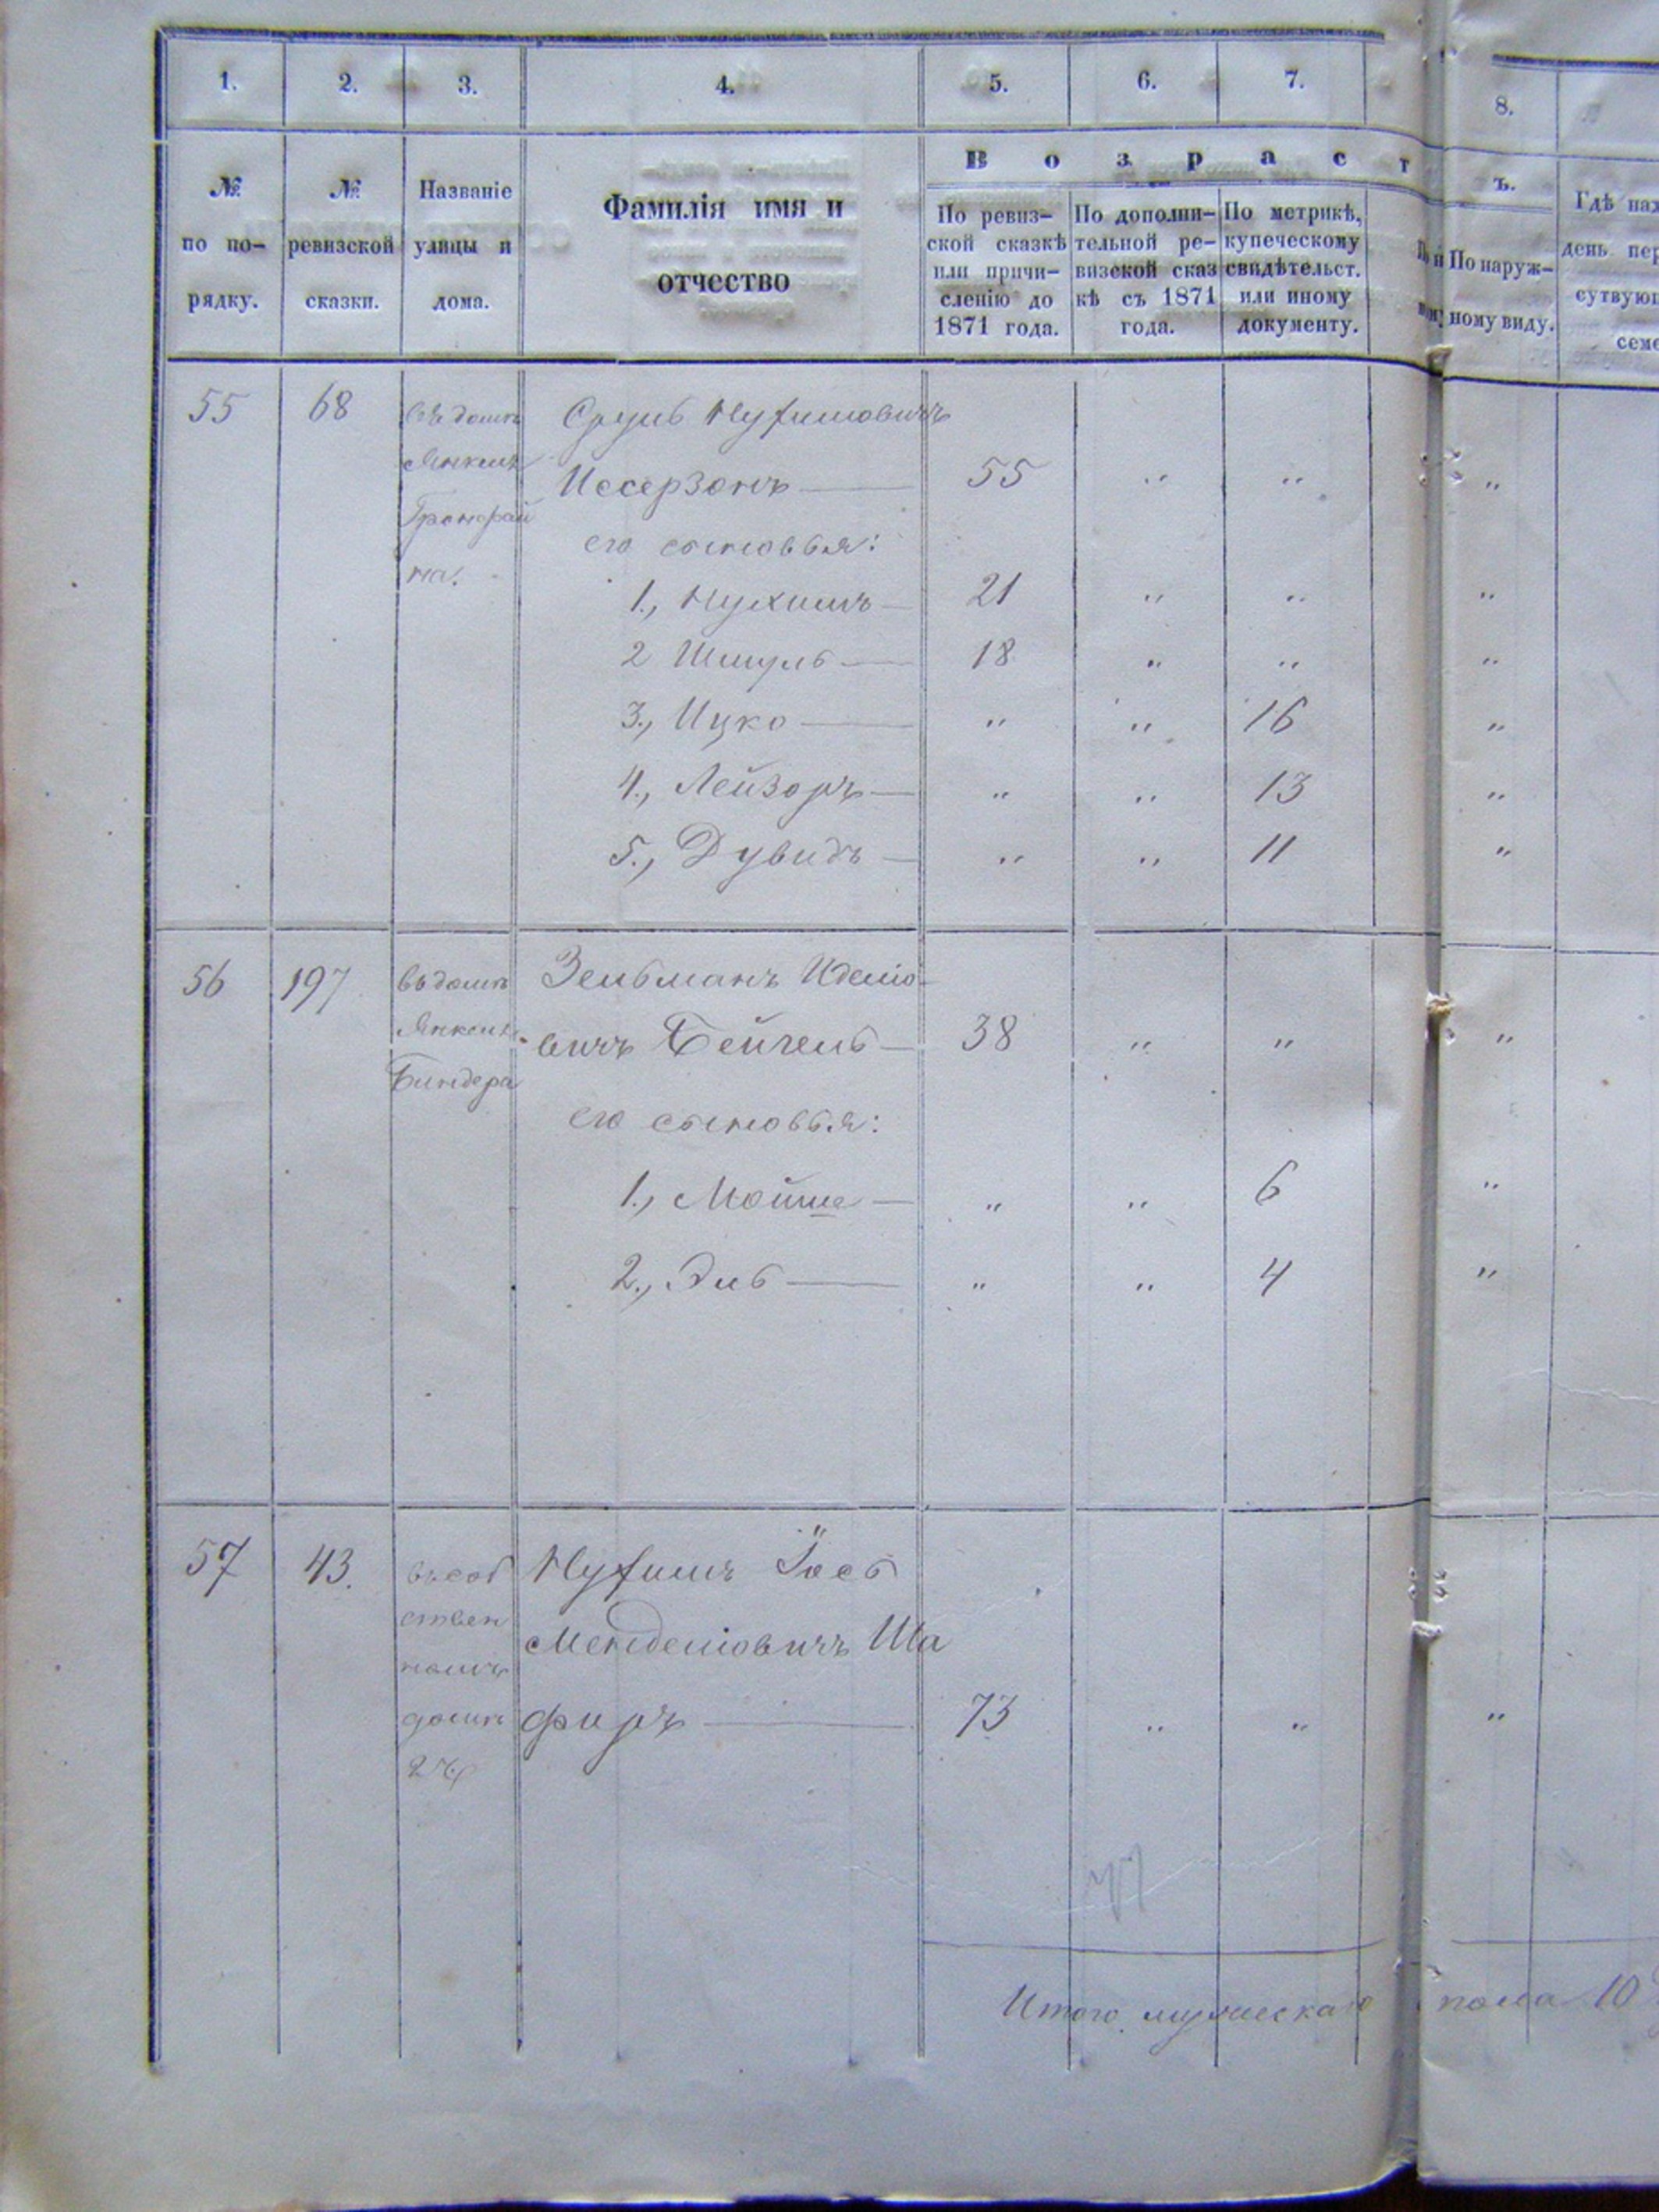 1. 2. 3. 4. 5. 6. 7. 8.
В о з р а с т ъ.
№ по по-рядку.
№ ревизской сказки.
Названіе улицы и дома.
Фамилія имя и отчество
По ревиз-ской сказкѣ или причи-сленію до 1871 года.
По дополни-тельной ре-визской сказ кѣ съ 1871 года.
По метрикѣ, купеческому свидѣтельст. или иному документу.
По наруж-ному виду.
Гдѣ нах
день пер
сутвующ
семе
55 68 въ домѣ Срулъ Нухимовичъ
Янкеля Иссерзонъ — 55 " " "
его сыновья:
на.
1., Нухимъ — 21 " " "
2 Шмуль — 18 " " "
3., Ицко — " " 16 "
4., Лейзоръ — " " 13 "
5., Дувидъ — " " 11 "
56 197 въ домѣ Зельманъ Иделіо-
Янкеля вичъ Бейгель — 38 " " "
Биндера
его сыновья:
1., Мойше — " " 6 "
2., Эль — " " 4 "
57 43. въ соб Нухимъ Йось
ствен Менделіовичъ Ша
номъ
домѣ фиръ — 73 " " "
Итого мужескаго пола 10